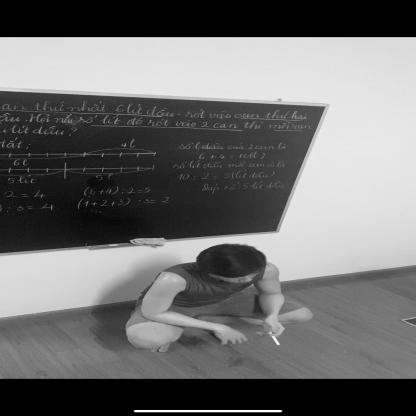 an thứ nhất 6 lít dầu - rót vào can thứ hai
ầu. Hỏi nếu số lít đó rót vào 2 can thì mỗi can
lít dầu?
tắt:
4l
6l
5 lít
5l
: 2 = 4
(6+4) : 2 = 5
: 3 = 4
(1+2+3) : 3 = 2
Số l dầu của 2 can là
6 + 4 = 10 (l)
Số lít dầu mỗi can là
10 : 2 = 5 (lít dầu)
Đáp số: 5 lít dầu